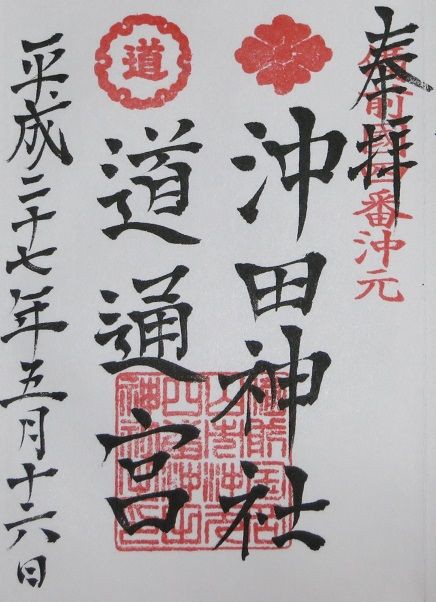 奉拝
備前國四番沖元
沖田神社
道
道通宮
平成二十七年五月十六日